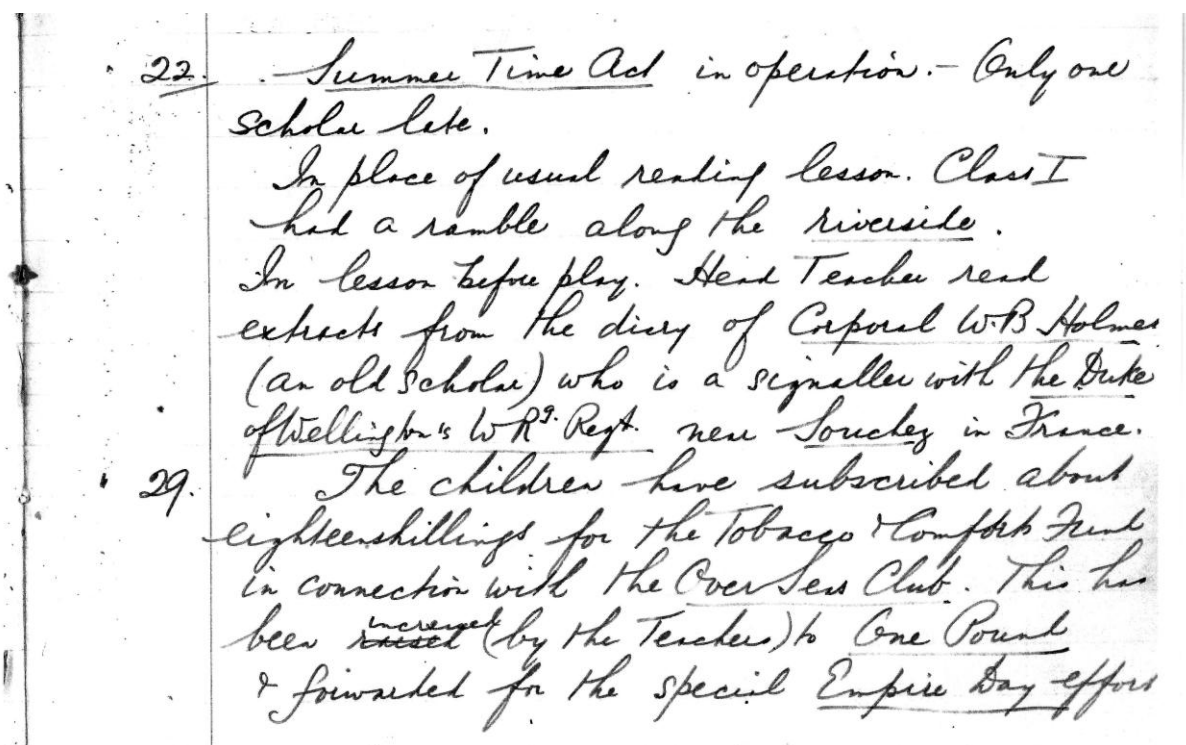 22. Summer Time Act in operation. - Only one
scholar late.
In place of usual reading lesson. Class I
had a ramble along the riverside.
In lesson before play. Head Teacher read
extracts from the diary of Corporal W.B Holmes
(an old scholar) who is a signaller with the Duke
of Wellington's W Rg. Regt. near Souchez in France.
29. The children have subscribed about
eighteenshillings for the Tobacco & Comforts Fund
in connection with the Over Seas Club. This has
been raised increased (by the Teachers) to One Pound
& forwarded for the special Empire Day effort